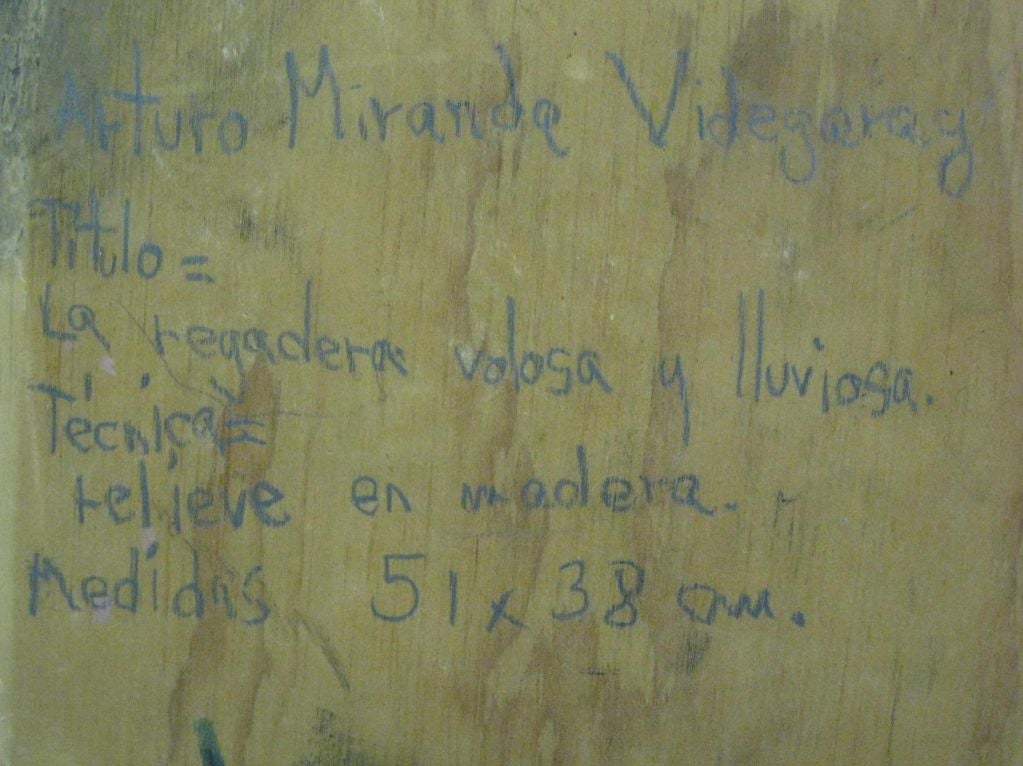 Arturo Miranda Videgaray
Titlo=
La regadera volosa y lluviosa.
Técnica=
relieve en madera.
Medidas 51 x 38 cm.